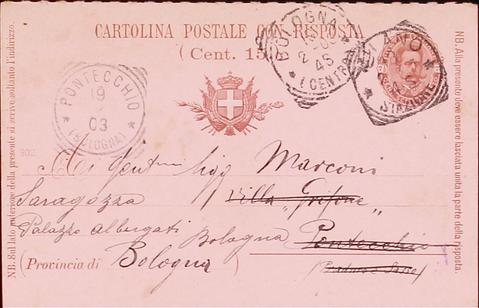 CARTOLINA POSTALE CON RISPOSTA
(Cent. 15)
BOLOGNA
(CENTRO)
MILANO
STAZIONE
PONTECCHIO
19
03
(BOLOGNA)
Marconi
Villa "Grifone"
Saragozza
Palazzo Albergati Bologna Pontecchio
(Provincia di Bologna)
NB. Sul lato anteriore della presente si scrive soltanto l'indirizzo.
NB. Alla presente deve essere lasciata unita la parte della risposta.